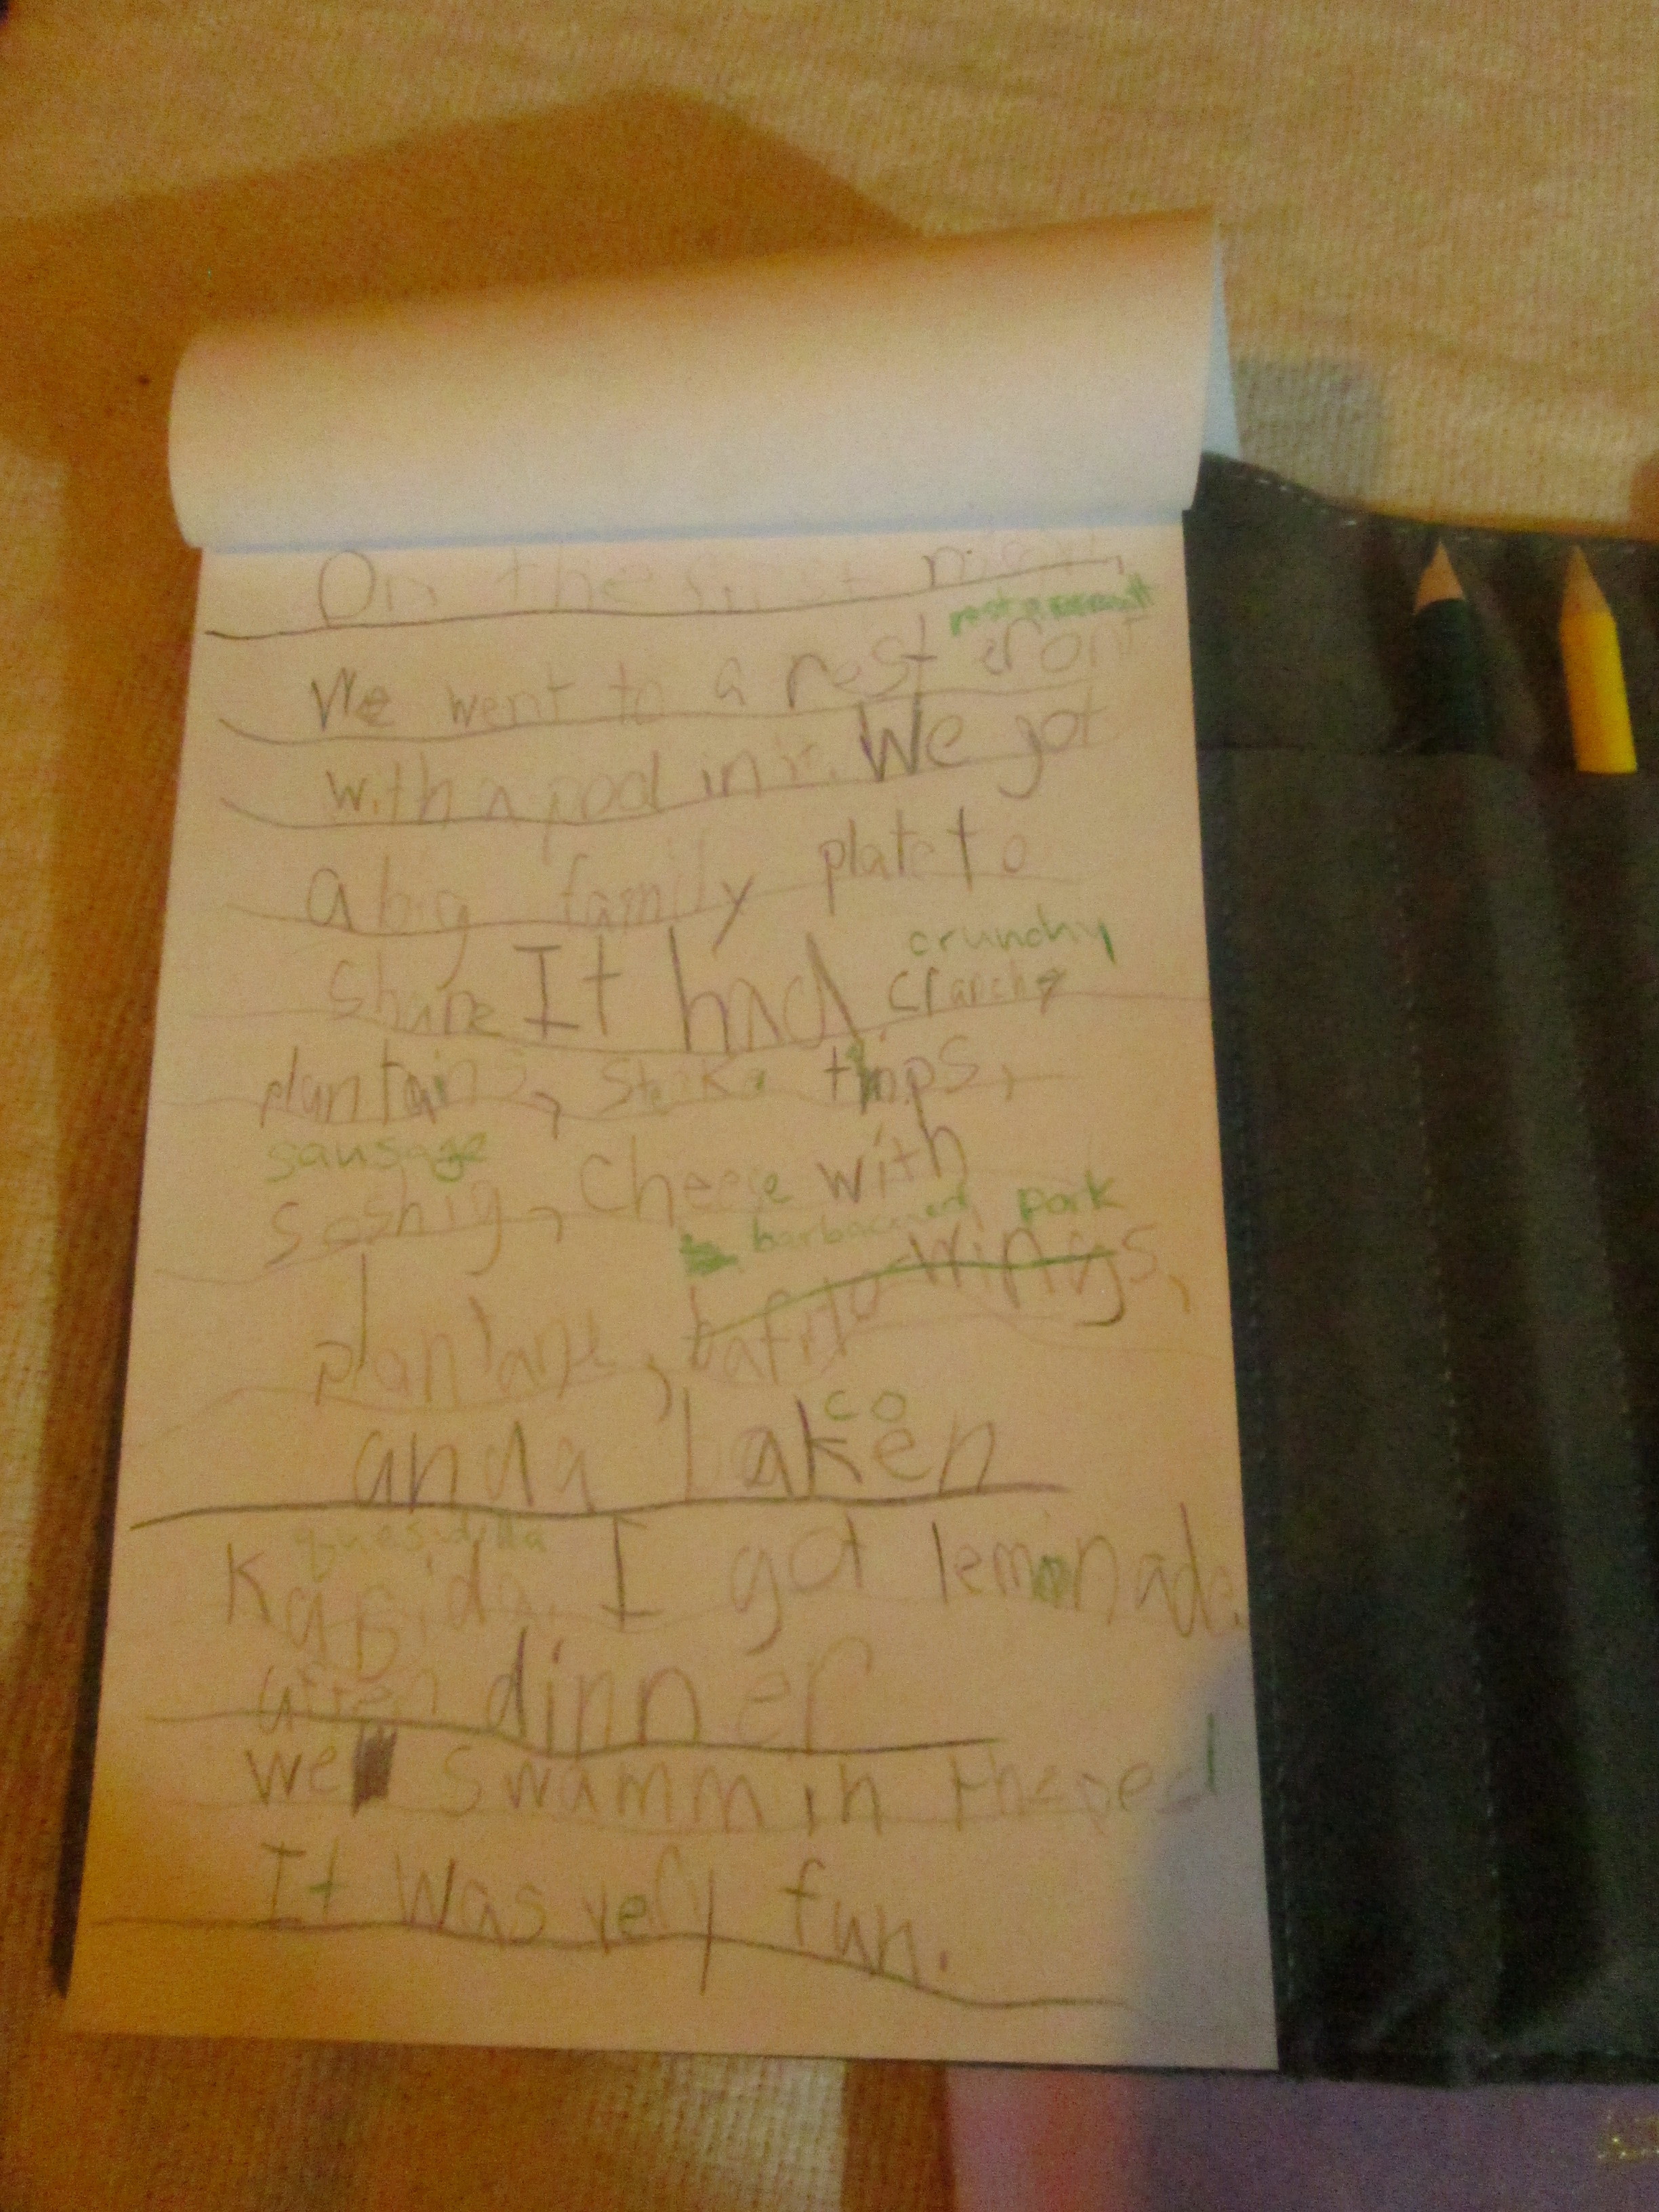 On the first night
restaurant
We went to a rest eront
with a pool in it. We got
a big family plate to
crunchy
share It had cranchy
plantains, steika thips,
sausage
soshig, cheese with
barbacued pork
plantans, bafflo wings,
co
and a Laken
quesidilla
Kagsida. I got lemonade.
after dinner
we swamm in the pool
It was very fun.